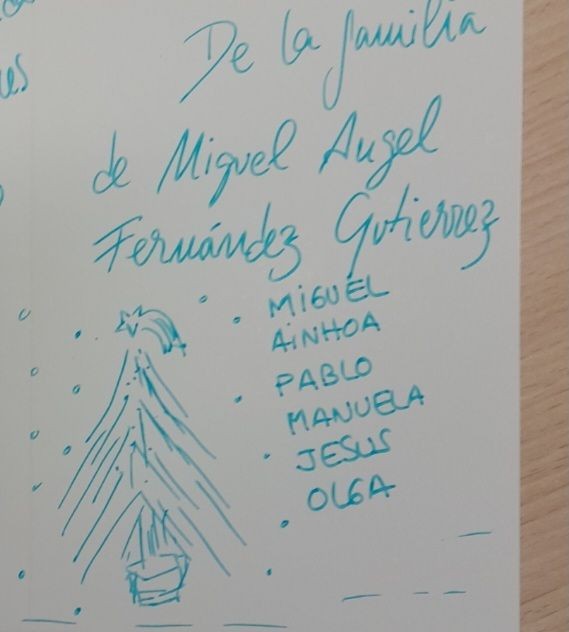 De la familia
de Miguel Angel
Fernández Gutierrez
MIGUEL
AINHOA
PABLO
MANUELA
JESUS
OLGA